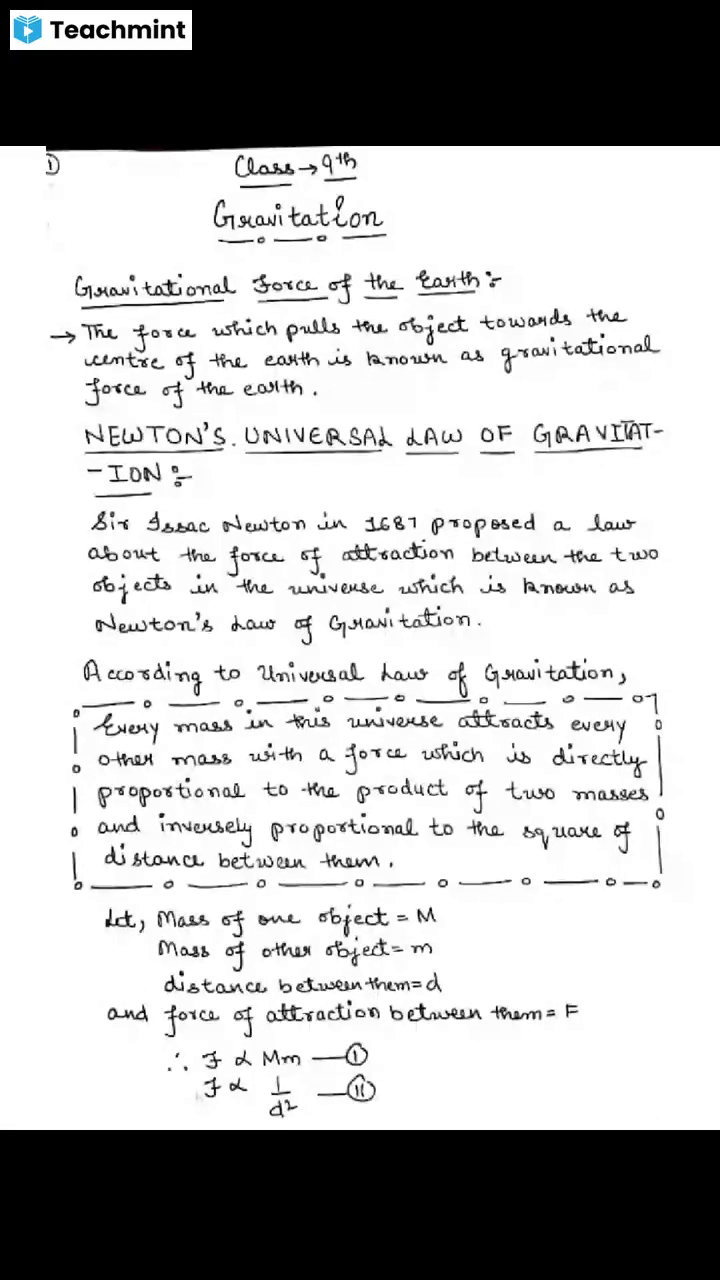 Teachmint
①
Class→9th
Gravitation
Gravitational Force of the Earth:-
→ The force which pulls the object towards the
centre of the earth is known as gravitational
force of the earth.
NEWTON'S UNIVERSAL LAW OF GRAVITAT-
-ION:-
Sir Issac Newton in 1687 proposed a law
about the force of attraction between the two
objects in the universe which is known as
Newton's Law of Gravitation.
According to Universal Law of Gravitation,
Every mass in this universe attracts every
other mass with a force which is directly
proportional to the product of two masses
and inversely proportional to the square of
distance between them.
Let, Mass of one object = M
Mass of other object = m
distance between them = d
and force of attraction between them = F
∴ F ∝ Mm —①
F ∝ 1/d² —⑪